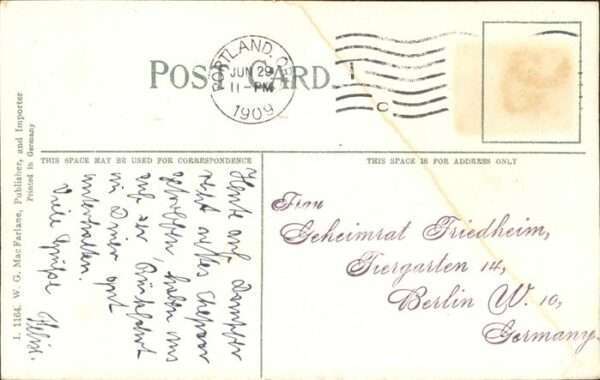 POST CARD.
PORTLAND, OR
JUN 29
11-PM
1909
1
C
THIS SPACE MAY BE USED FOR CORRESPONDENCE
THIS SPACE IS FOR ADDRESS ONLY
I. 1164. W. G. MacFarlane, Publisher, and Importer
Printed in Germany
Heute auf Dampfer
recht nettes Ehepaar
getroffen, haben uns
auf der Rückfahrt
im Diner gut
unterhalten.
Viele Grüße
Frau
Geheimrat Friedheim,
Tiergarten 14,
Berlin W. 10,
Germany.